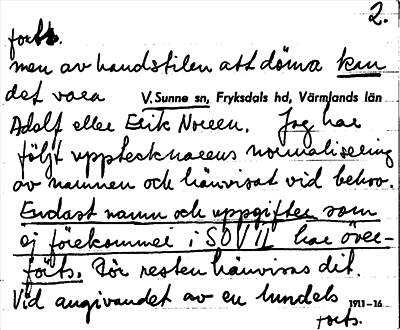 2.
forts.
men av handstilen att döma kan
det vara V. Sunne sn, Fryksdals hd, Värmlands län
Adolf eller Erik Noreen. Jag har
följt upptecknarens normalisering
av namnen och hänvisat vid behov.
Endast namn och uppgifter som
ej förekommer i SOV II har över-
förts. För resten hänvisas dit.
Vid angivandet av en lundels 1911-16
forts.